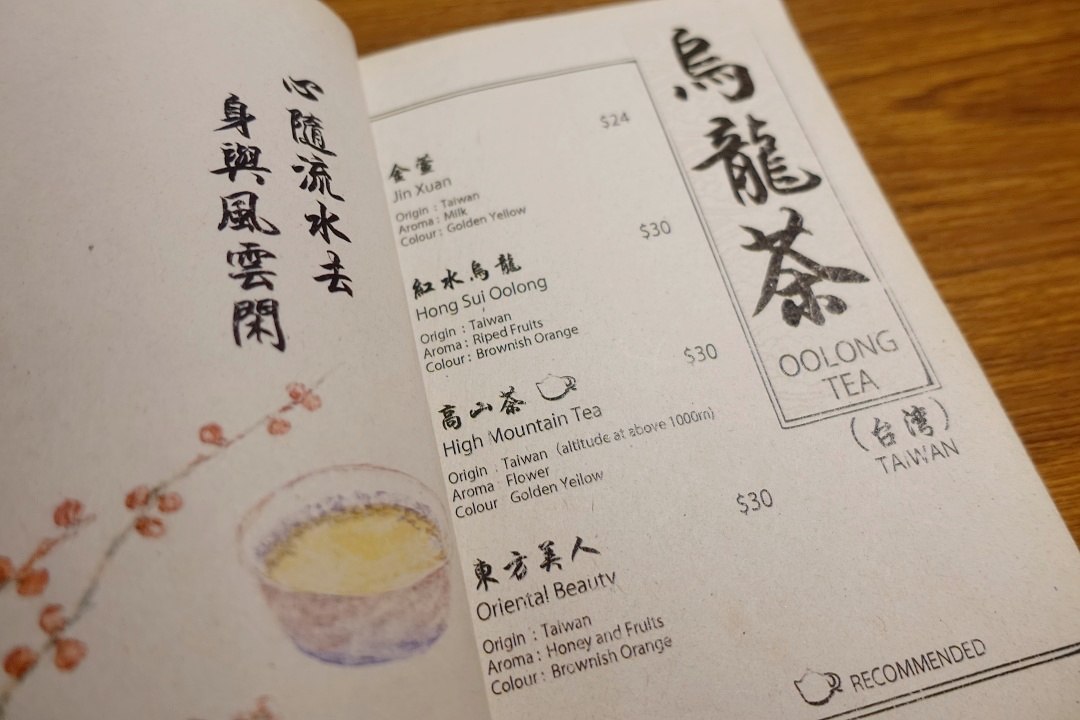 心隨流水去
身與風雲閑
烏龍茶
OOLONG
TEA
(台湾)
TAIWAN
金萱 $24
Jin Xuan
Origin : Taiwan
Aroma : Milk
Colour : Golden Yellow
紅水烏龍 $30
Hong Sui Oolong
Origin : Taiwan
Aroma : Riped Fruits
Colour : Brownish Orange
高山茶 $30
High Mountain Tea
Origin : Taiwan (altitude at above 1000m)
Aroma : Flower
Colour : Golden Yellow
東方美人 $30
Oriental Beauty
Origin : Taiwan
Aroma : Honey and Fruits
Colour : Brownish Orange
RECOMMENDED